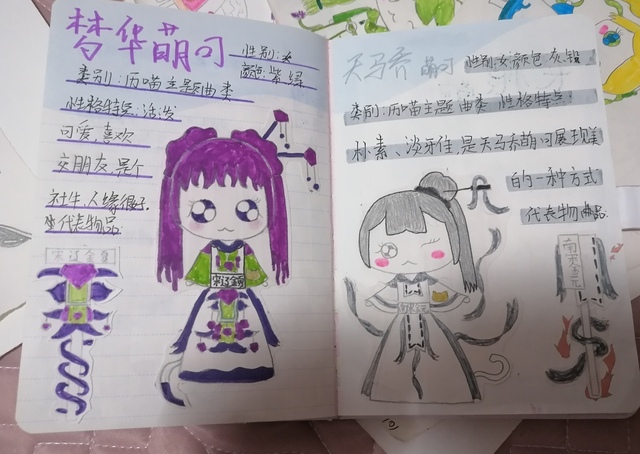 梦华萌可
性别:女
颜色:紫绿
类别:历喵主题曲类
性格特点:活发
可爱,喜欢
交朋友,是个
社牛,人缘很好.
代表物品:
宋辽金夏
宋辽金夏
天马乔 萌可
性别:女 颜色:灰,银
类别:历喵主题曲类 性格特点:
朴素、淡牙佳,是天马乔萌可展现美
的一种方式
代表物品
南宋金元